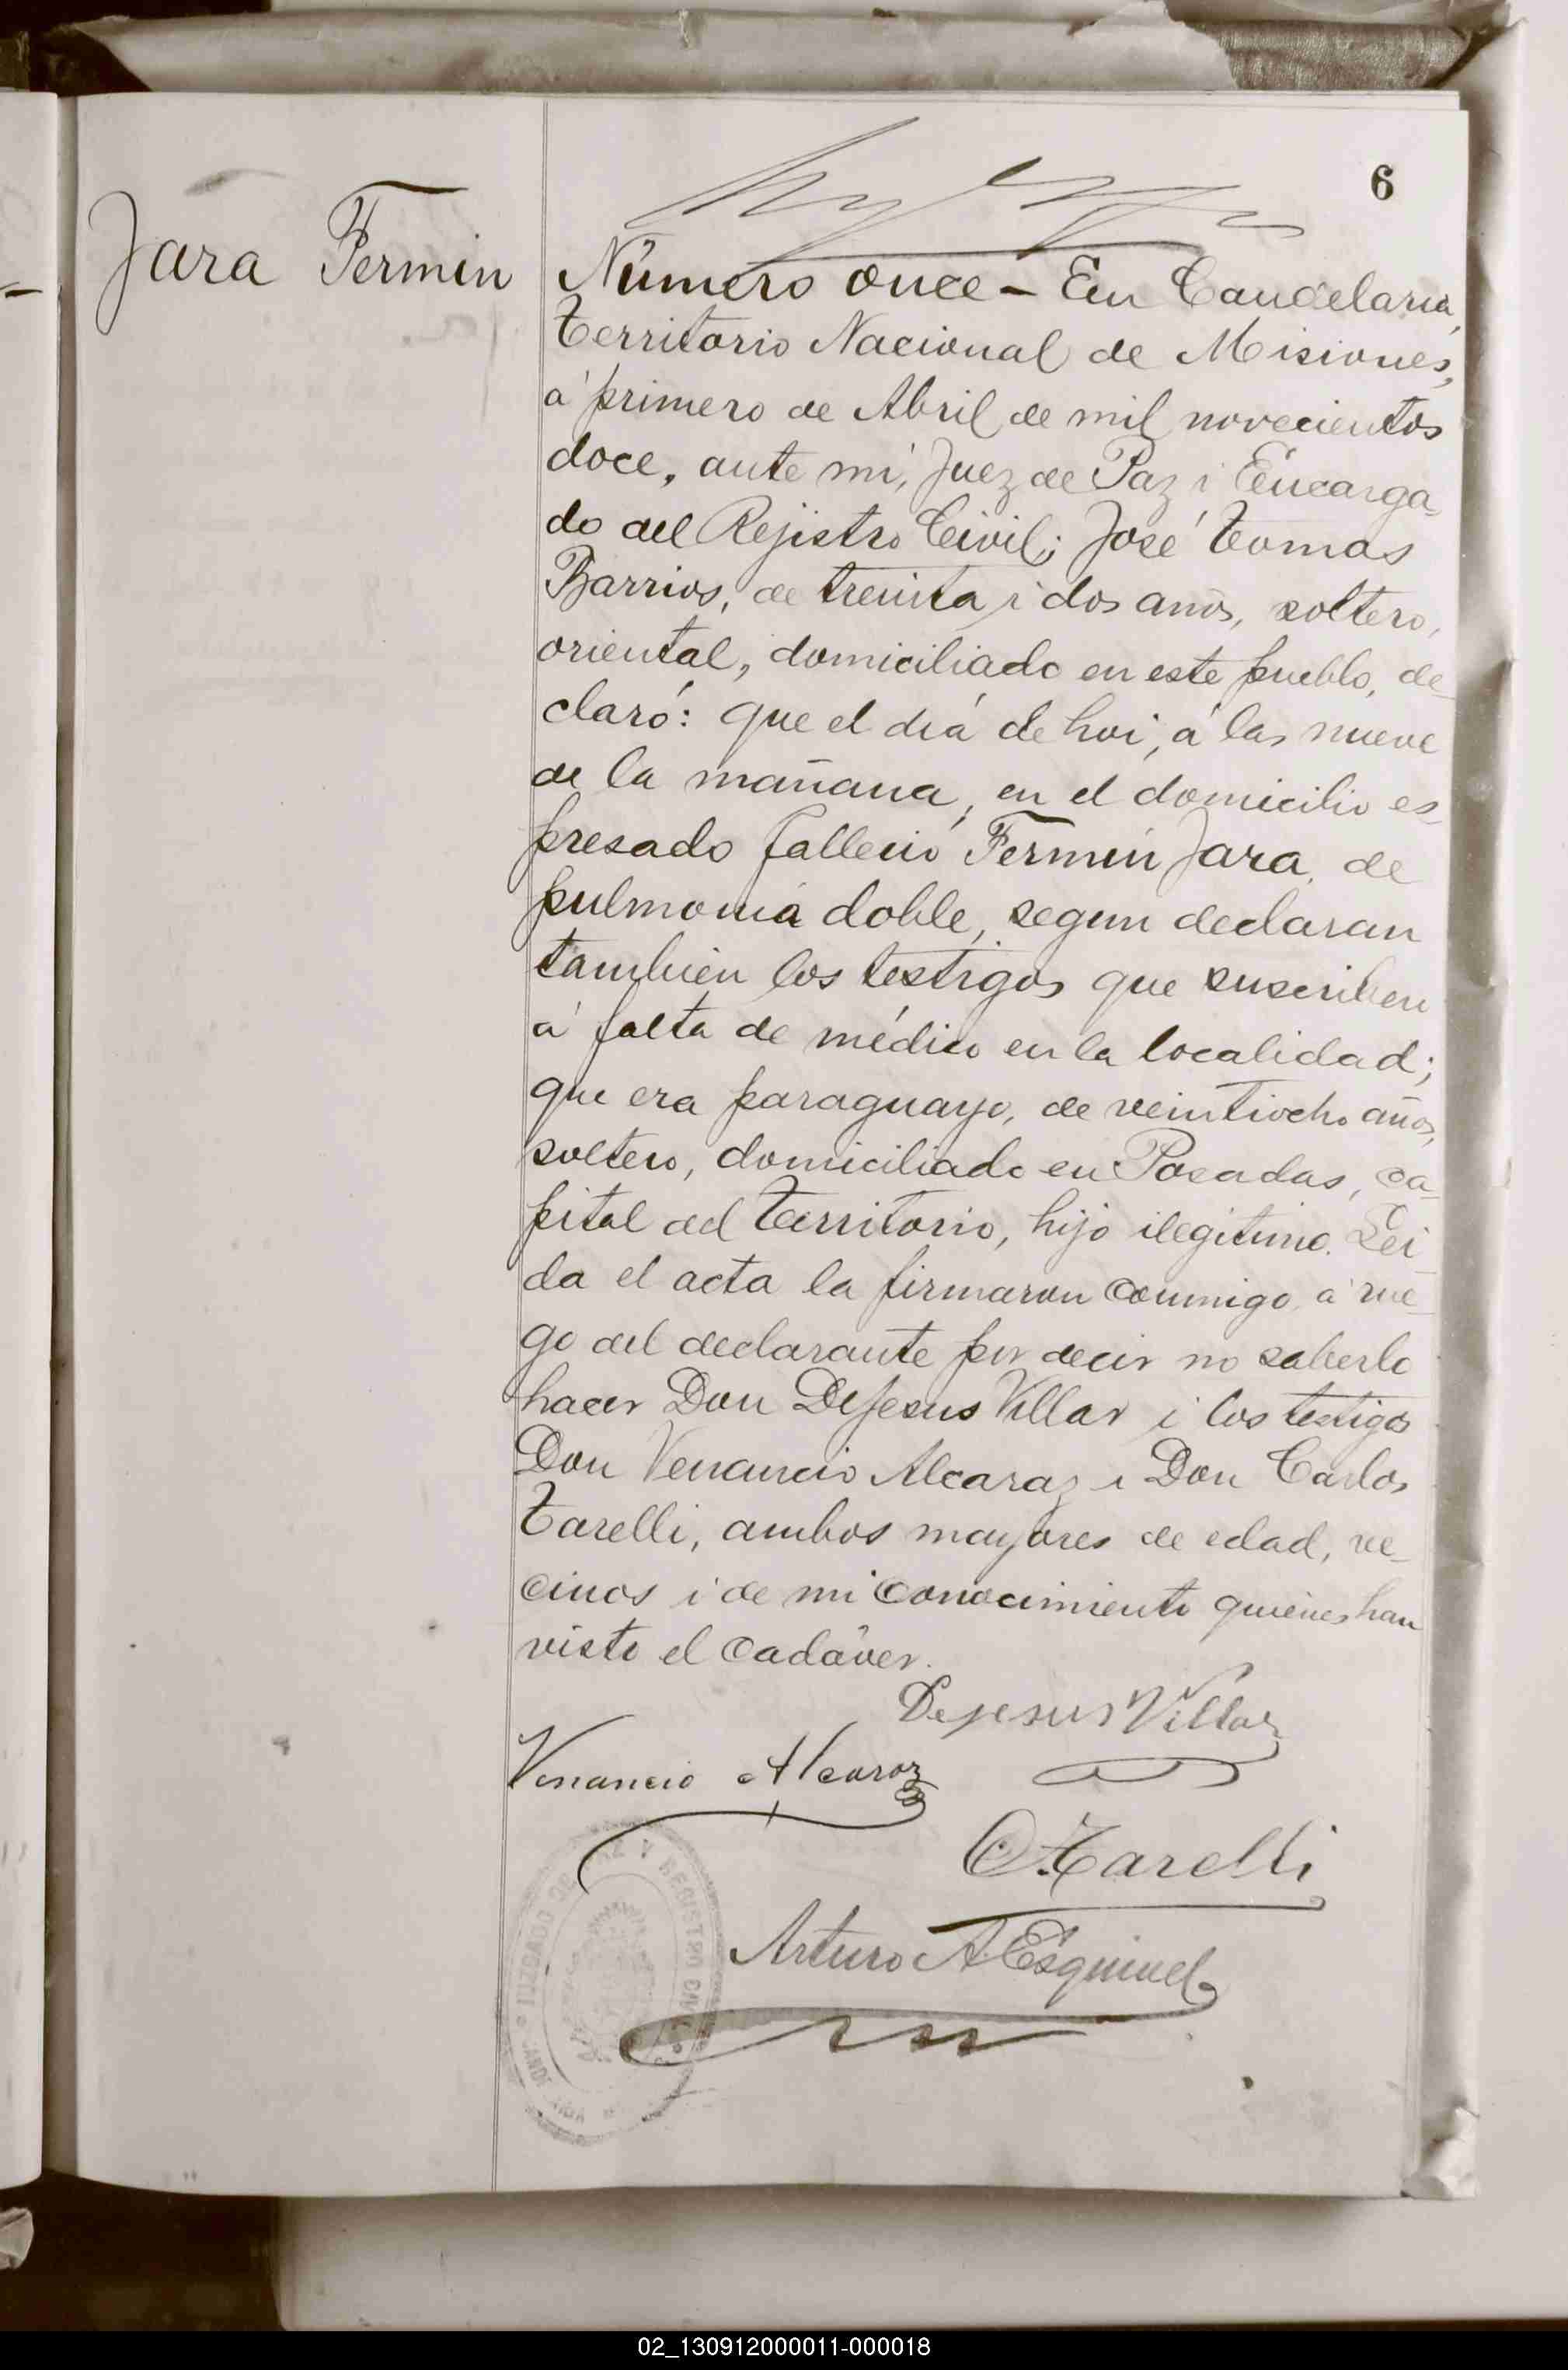 6
Jara Fermin
Número once - En Candelaria,
Territorio Nacional de Misiones,
á primero de Abril de mil novecientos
doce, ante mi, Juez de Paz i Encarga-
do del Rejistro Civil; José Tomas
Barrios, de treinta i dos años, soltero,
oriental, domiciliado en este pueblo, de-
claró: que el dia de hoi, á las nueve
de la mañana, en el domicilio es-
presado falleció Fermin Jara, de
pulmonia doble, segun declaran
también los testigos que suscriben
á falta de médico en la localidad;
que era paraguayo, de veintiocho años,
soltero, domiciliado en Posadas, ca-
pital del Territorio, hijo ilegitimo. Lei-
da el acta la firmaron conmigo, á rue-
go del declarante por decir no saberlo
hacer Don DeJesus Villar i los testigos
Don Venancio Alcaraz i Don Carlos
Tarelli, ambos mayores de edad, ve-
cinos i de mi conocimiento quienes han
visto el cadáver.
Dejesus Villar
Venancio Alcaraz
C Tarelli
Arturo A Esquivel
JUZGADO DE PAZ Y REGISTRO CIVIL
02_130912000011-000018